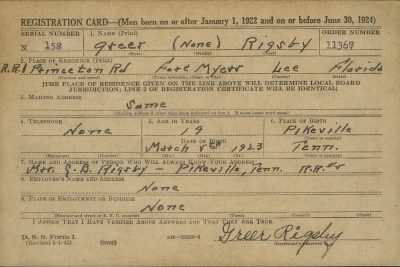 REGISTRATION CARD—(Men born on or after January 1, 1922 and on or before June 30, 1924)
SERIAL NUMBER 1. NAME (Print) ORDER NUMBER
N 158 Greer (None) Rigsby 11369
(First) (Middle) (Last)
2. PLACE OF RESIDENCE (Print)
R.R.1 Princeton Rd Fort Myers Lee Florida
(Number and street) (Town, township, village, or city) (County) (State)
[THE PLACE OF RESIDENCE GIVEN ON THE LINE ABOVE WILL DETERMINE LOCAL BOARD
JURISDICTION; LINE 2 OF REGISTRATION CERTIFICATE WILL BE IDENTICAL]
3. MAILING ADDRESS
Same
[Mailing address if other than place indicated on line 2. If same insert word same]
4. TELEPHONE 5. AGE IN YEARS 6. PLACE OF BIRTH
None 19 Pikeville
DATE OF BIRTH (Town or county)
March 1923 Tenn.
(Exchange) (Number) (Mo.) (Day) (Yr.) (State or country)
7. NAME AND ADDRESS OF PERSON WHO WILL ALWAYS KNOW YOUR ADDRESS
Mrs. G. B. Rigsby — Pikeville, Tenn. R.R.
8. EMPLOYER'S NAME AND ADDRESS
None
9. PLACE OF EMPLOYMENT OR BUSINESS
None
(Number and street or R. F. D. number) (Town) (County) (State)
I AFFIRM THAT I HAVE VERIFIED ABOVE ANSWERS AND THAT THEY ARE TRUE.
D. S. S. Form 1
(Revised 6-1-42) (over) Greer Rigsby
(Registrant's signature)